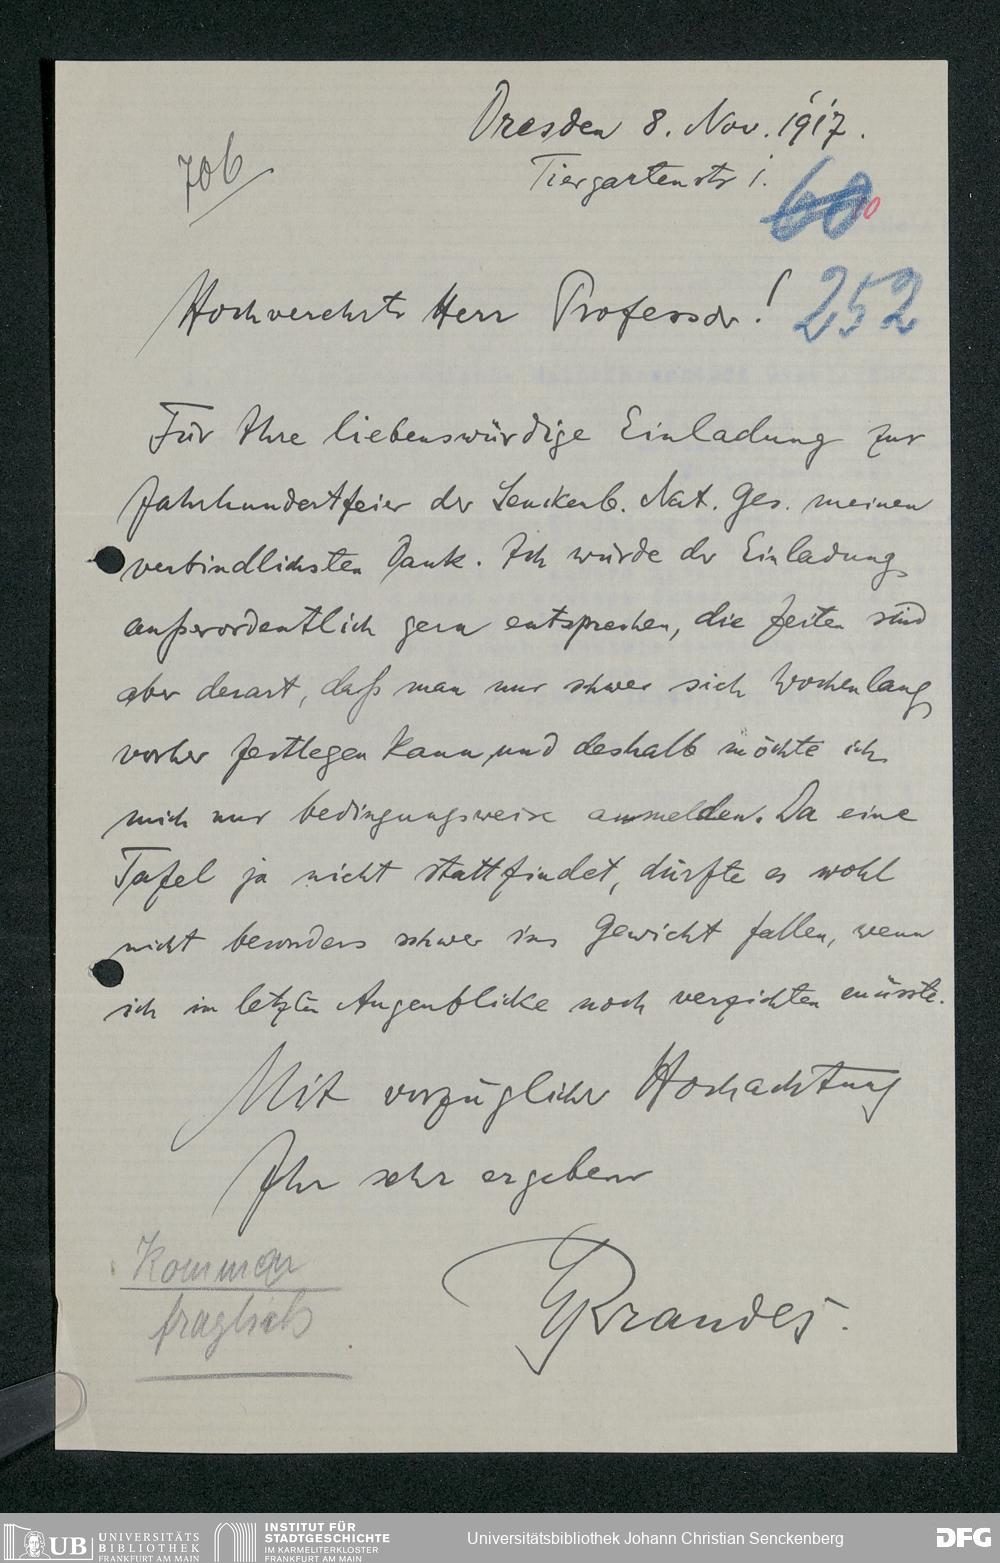 Dresden 8. Nov. 1917.
Tiergartenstr 1.
706
60
0
252
Hochverehrter Herr Professor!
Für Ihre liebenswürdige Einladung zur
Jahrhundertfeier der Senckenb. Nat. Ges. meinen
verbindlichsten Dank. Ich würde der Einladung
außerordentlich gern entsprechen, die Zeiten sind
aber derart, daß man nur schwer sich wochenlang
vorher festlegen kann, und deshalb möchte ich
mich nur bedingungsweise anmelden. Da eine
Tafel ja nicht stattfindet, dürfte es wohl
nicht besonders schwer ins Gewicht fallen, wenn
ich im letzten Augenblicke noch verzichten müsste.
Mit vorzüglicher Hochachtung
Ihr sehr ergebener
GBrandes.
Kommen
fraglich
UB UNIVERSITÄTS
BIBLIOTHEK
FRANKFURT AM MAIN
INSTITUT FÜR
STADTGESCHICHTE
IM KARMELITERKLOSTER
FRANKFURT AM MAIN
Universitätsbibliothek Johann Christian Senckenberg
DFG